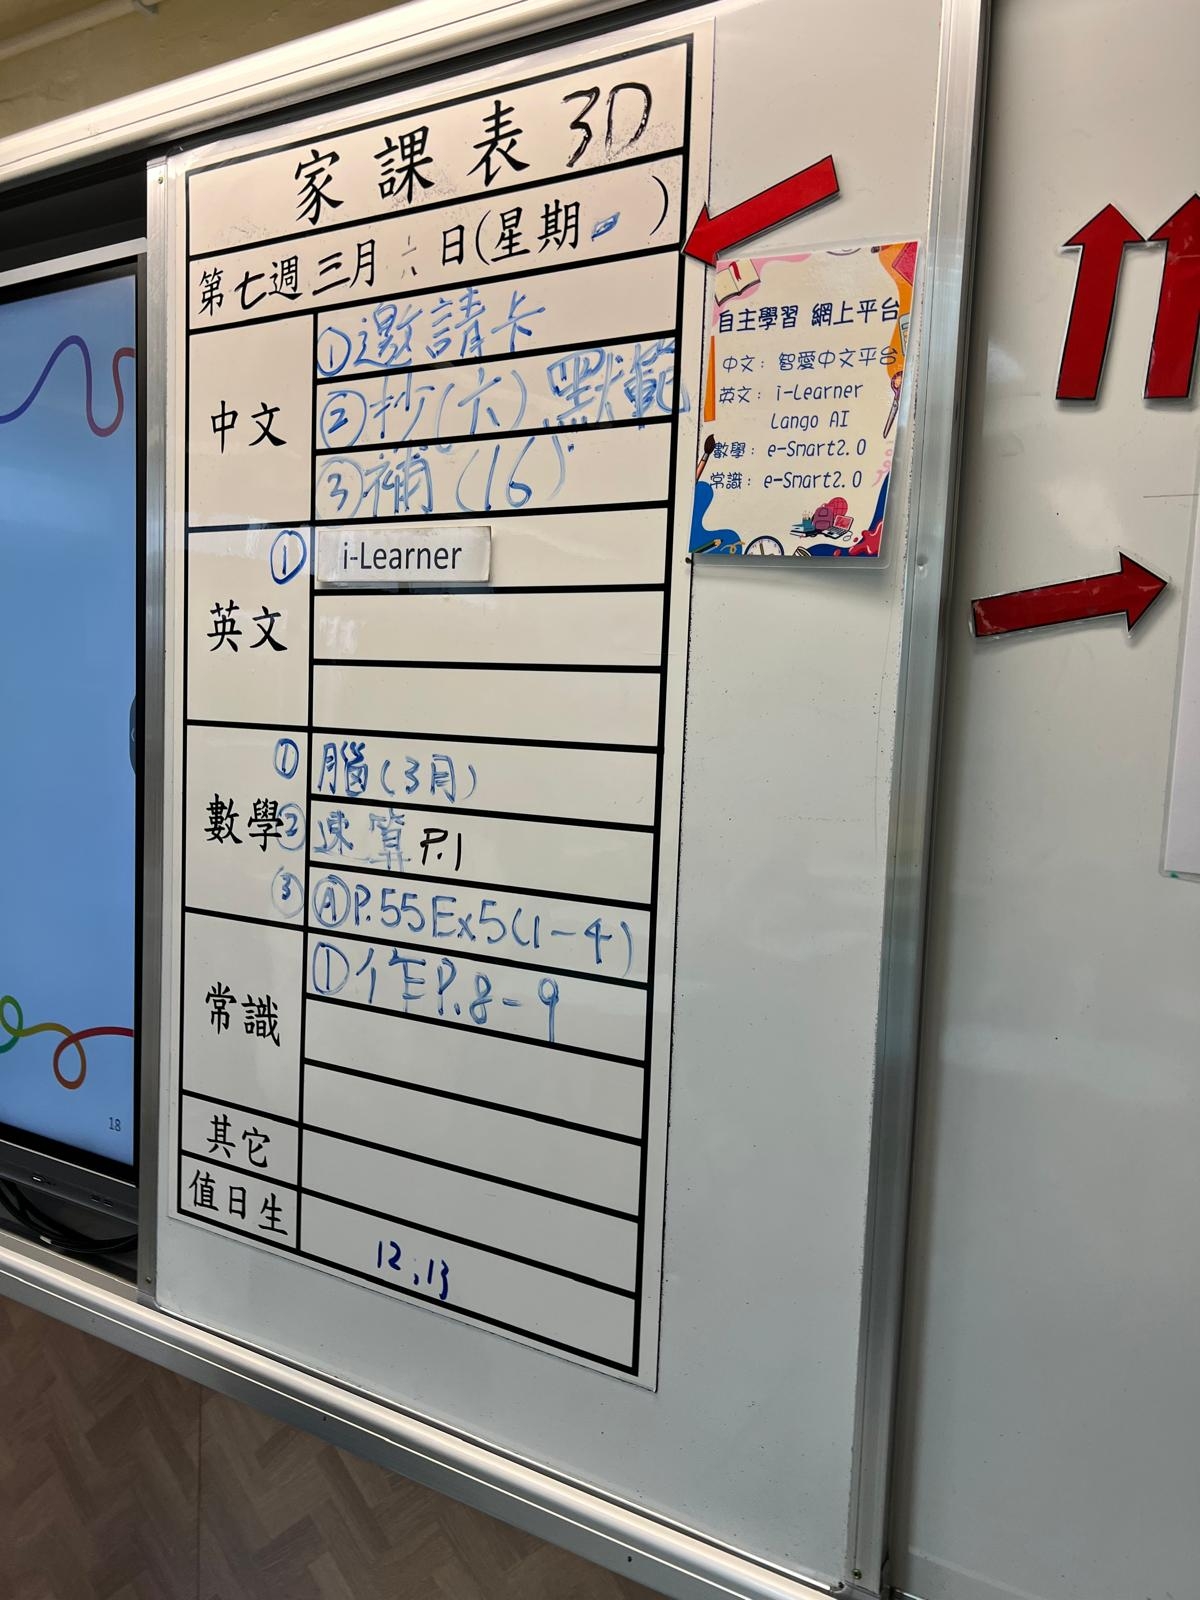 家課表 3D
第七週三月 日(星期 )
中文
①邀請卡
②抄(六)默範
③補(16)
英文
① i-Learner
數學
① 腦(3月)
② 速算 P.1
③ Ⓐ P.55 Ex5(1-4)
常識
①作 P.8-9
其它
值日生
12,13
自主學習 網上平台
中文：智愛中文平台
英文：i-Learner
Lango AI
數學：e-Smart2.0
常識：e-Smart2.0
18